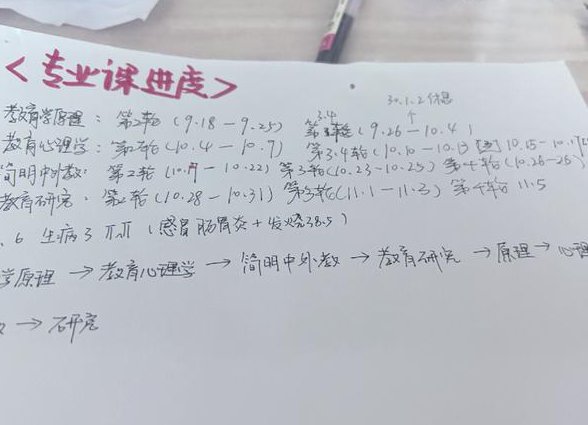 <专业课进度>
30.1.2休息
教育学原理：第2轮（9.18－9.25） 第3.4轮（9.26－10.4）
教育心理学：第2轮（10.4－10.7） 第3.4轮（10.10－10.13
简明中外教：第2轮（10.17－10.22）第3轮（10.23－10.25）第4轮（10.26-28
教育研究：第2轮（10.28－10.31）第3轮（11.1－11.3）第4轮 11.5
.6 生病了 TT（感冒肠胃炎+发烧38.5）
学原理→教育心理学→简明中外教→教育研究→原理→心理
→研究